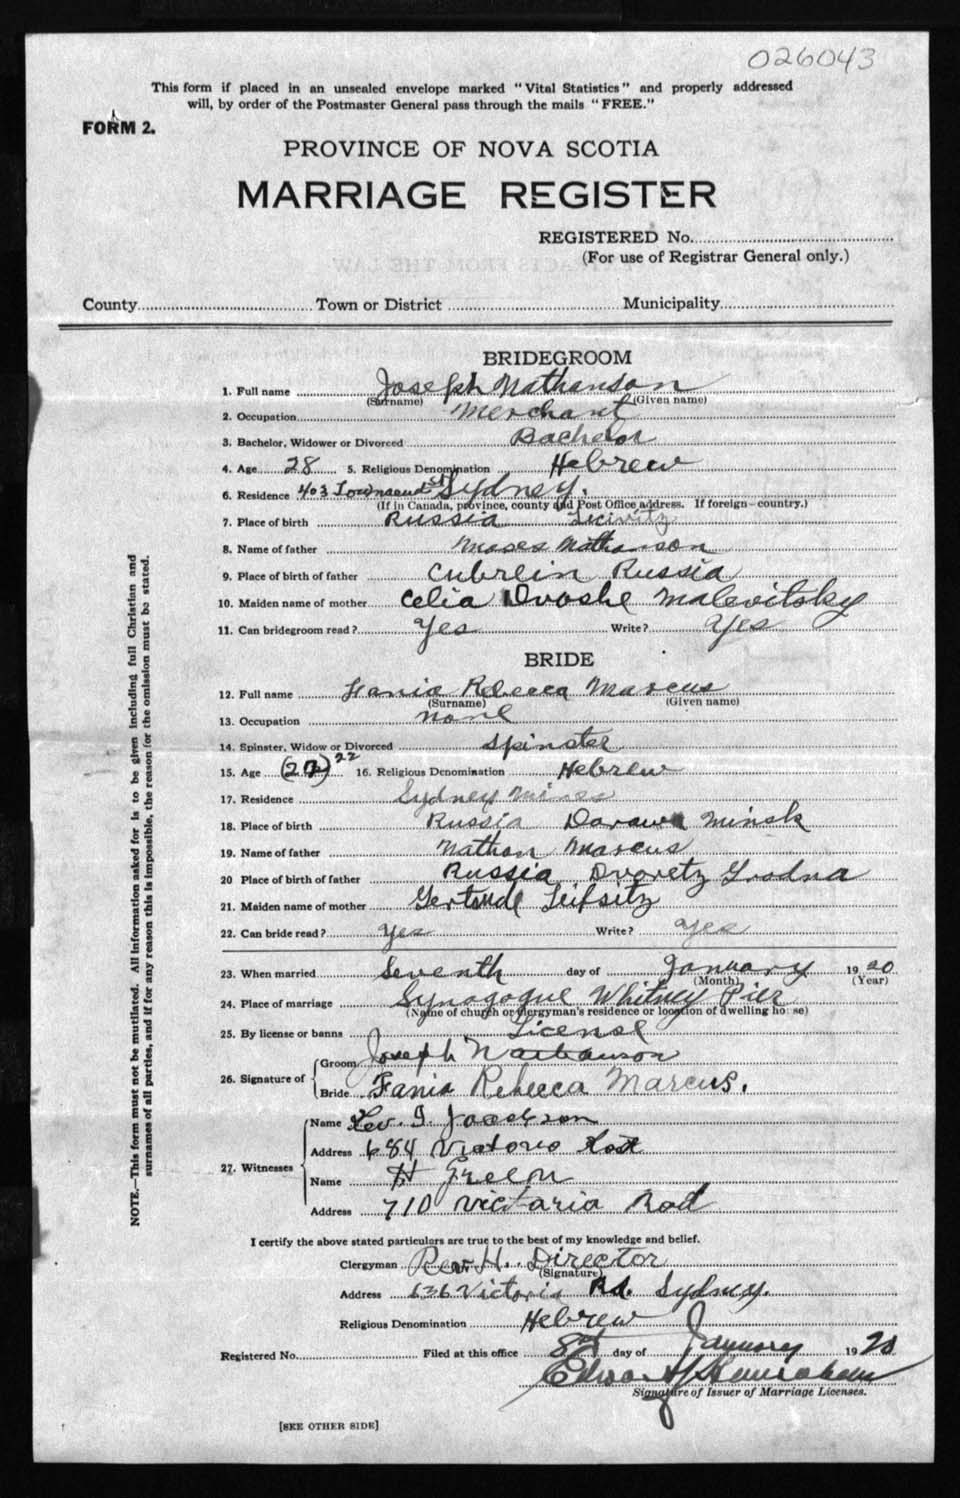 026043
This form if placed in an unsealed envelope marked "Vital Statistics" and properly addressed
will, by order of the Postmaster General pass through the mails "FREE."
FORM 2.
PROVINCE OF NOVA SCOTIA
MARRIAGE REGISTER
REGISTERED No.
(For use of Registrar General only.)
County Town or District Municipality
BRIDEGROOM
1. Full name Joseph Nathanson
(Surname) (Given name)
2. Occupation Merchant
3. Bachelor, Widower or Divorced Bachelor
4. Age 28 5. Religious Denomination Hebrew
6. Residence 403 Townsend St Sydney.
(If in Canada, province, county and Post Office address. If foreign—country.)
7. Place of birth Russia
8. Name of father Moses Nathanson
9. Place of birth of father Cubrlin Russia
10. Maiden name of mother Celia Dvoshe Malevitsky
11. Can bridegroom read? Yes Write? Yes
BRIDE
12. Full name Fania Rebecca Marcus
(Surname) (Given name)
13. Occupation none
14. Spinster, Widow or Divorced Spinster
15. Age 22 16. Religious Denomination Hebrew
17. Residence Sydney Mines
18. Place of birth Russia Minsk
19. Name of father Nathan Marcus
20 Place of birth of father Russia Dvoretz Grodna
21. Maiden name of mother Gertrude Leifsitz
22. Can bride read? Yes Write? Yes
23. When married Seventh day of January 1920
(Month) (Year)
24. Place of marriage Synagogue Whitney Pier
(Name of church or clergyman's residence or location of dwelling house)
25. By license or banns License
26. Signature of
Groom Joseph Nathanson
Bride Fania Rebecca Marcus.
27. Witnesses
Name Rev. I. Jacobson
Address 684 Victoria Road
Name H Green
Address 710 Victoria Rod
I certify the above stated particulars are true to the best of my knowledge and belief.
Clergyman Rev. H. Director
(Signature)
Address 636 Victoria Rd. Sydney.
Religious Denomination Hebrew
Registered No. Filed at this office 8th day of January 1920
Signature of Issuer of Marriage Licenses.
[SEE OTHER SIDE]
NOTE.—This form must not be mutilated. All information asked for is to be given including full Christian and
surnames of all parties, and if for any reason this is impossible, the reason for the omission must be stated.